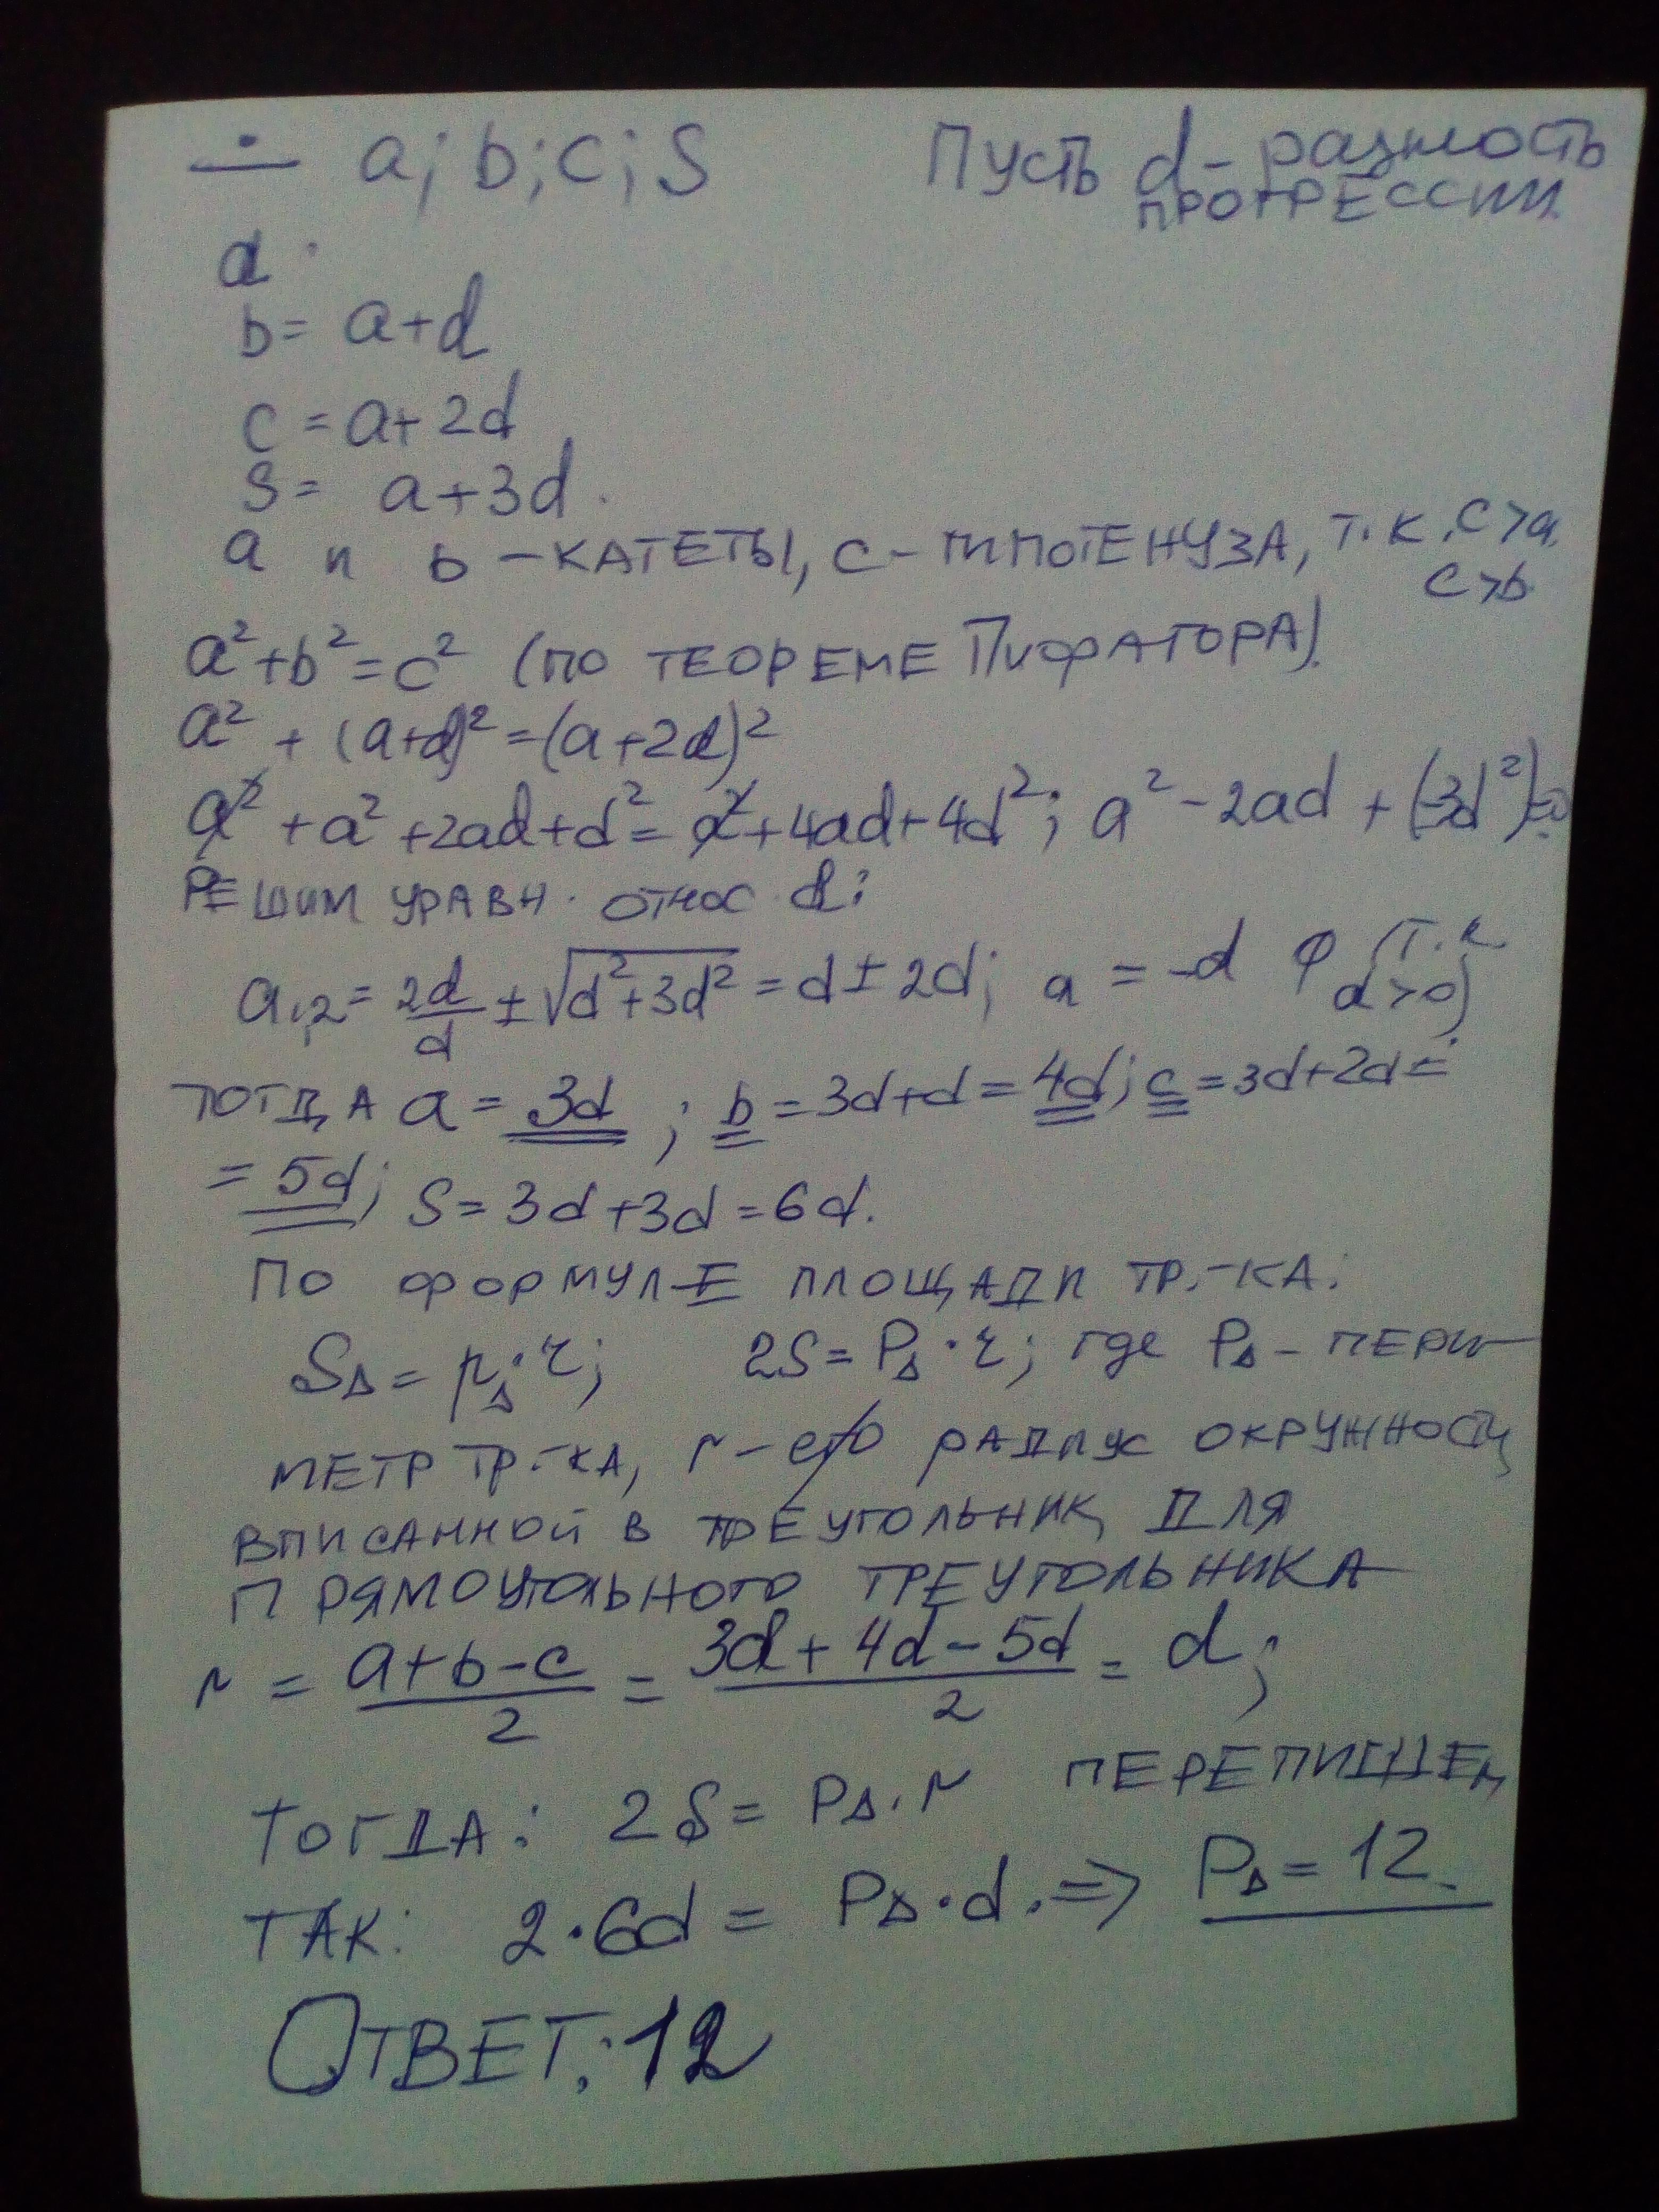 ∸ a; b; c; S Пусть d - разность
прогрессии.
a
b = a+d
c = a+2d
S = a+3d.
a и b - катеты, c - гипотенуза, т.к. c>a,
c>b
a² + b² = c² (по теореме Пифагора).
a² + (a+d)² = (a+2d)²
a² + a² + 2ad + d² = a² + 4ad + 4d²; a² - 2ad + (-3d²) = 0
Решим уравн. относ. a:
a₁,₂ = 2d/d ± √(d²+3d²) = d ± 2d; a = -d φ (т.к.
d>0)
тогда a = 3d; b = 3d+d = 4d; c = 3d+2d =
= 5d; S = 3d+3d = 6d.
По формуле площади тр.-ка:
S∆ = p∆·r; 2S = P∆·r; где P∆ - пери-
метр тр-ка, r - радиус окружности
вписанной в треугольник, для
прямоугольного треугольника
r = (a+b-c)/2 = (3d+4d-5d)/2 = d;
Тогда: 2S = P∆·r перепишем
так: 2·6d = P∆·d. ⇒ P∆ = 12.
Ответ: 12